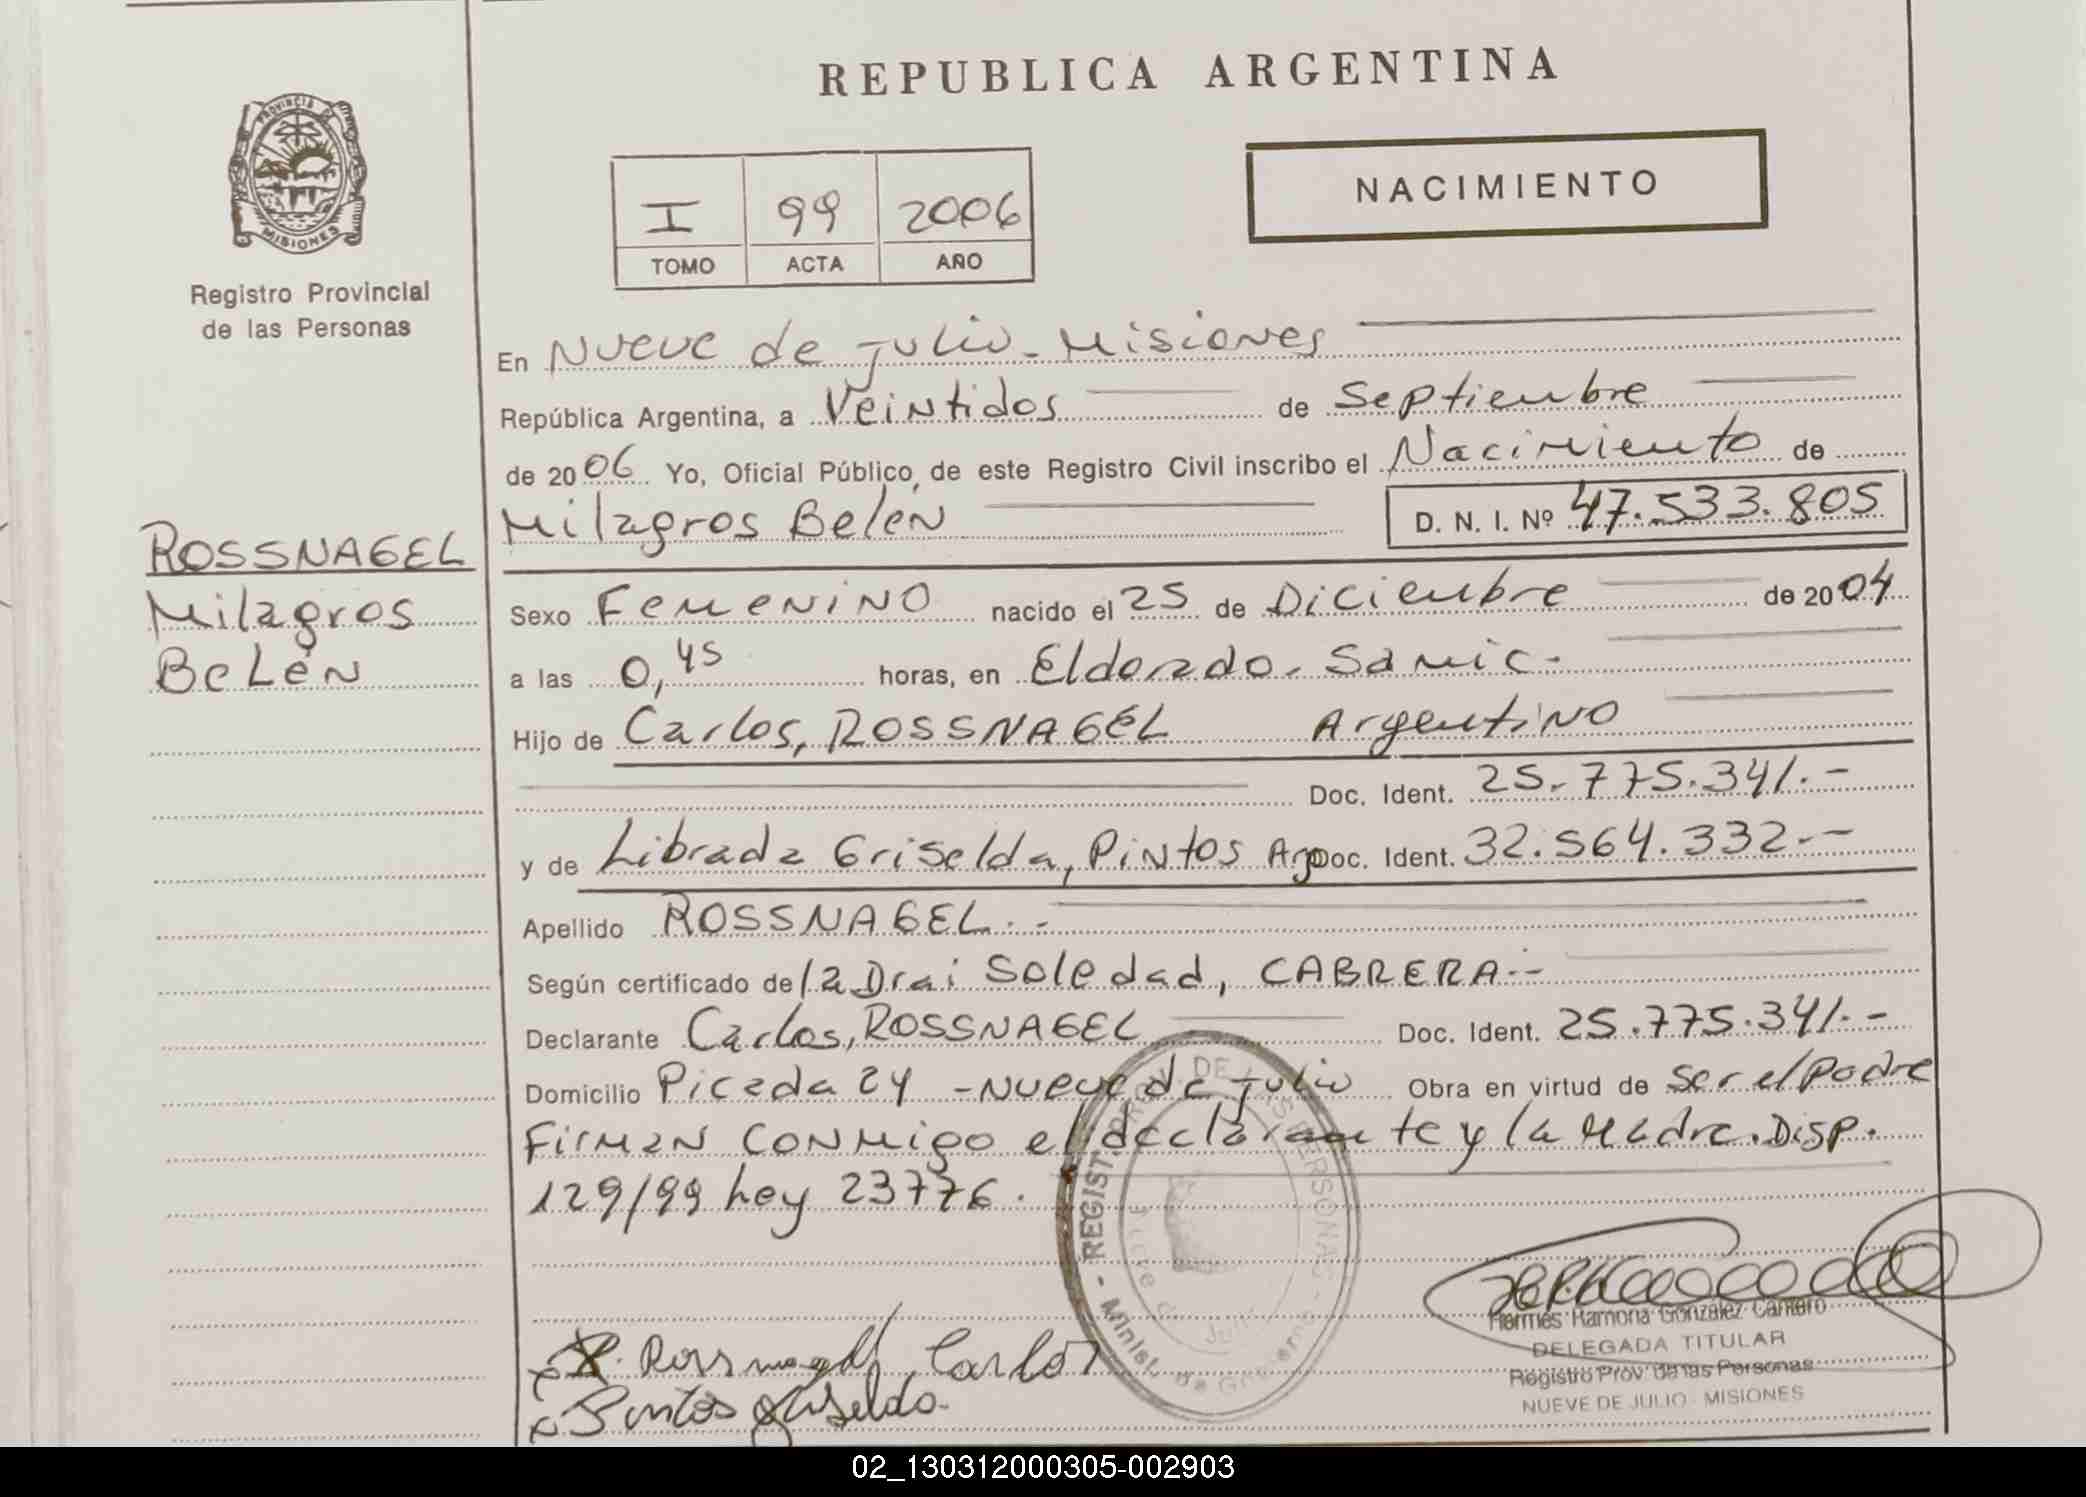 REPUBLICA ARGENTINA
PROVINCIA DE
MISIONES
Registro Provincial
de las Personas
I 99 2006
TOMO ACTA AÑO
NACIMIENTO
ROSSNAGEL
Milagros
Belén
En Nueve de Julio - Misiones
República Argentina, a Veintidos de Septiembre
de 2006 Yo, Oficial Público, de este Registro Civil inscribo el Nacimiento de
Milagros Belén D. N. I. Nº 47.533.805
Sexo Femenino nacido el 25 de Diciembre de 2004
a las 0,45 horas, en Eldorado - Samic -
Hijo de Carlos, ROSSNAGEL Argentino
Doc. Ident. 25.775.341.-
y de Librada Griselda, Pintos Arg Doc. Ident. 32.564.332.-
Apellido ROSSNAGEL.-
Según certificado de la Dra; Soledad, CABRERA.-
Declarante Carlos, ROSSNAGEL Doc. Ident. 25.775.341.-
Domicilio Picada 24 - Nueve de Julio Obra en virtud de ser el Padre
Firman conmigo el declarante y la Madre. Disp.
129/99 hoy 23776.
REGIST. PROV. DE LAS PERSONAS - Minist. de Gobierno -
Nueve de Julio
Rossnagel Carlos
Pintos Griselda
Hermes Ramona Gonzalez Cantero
DELEGADA TITULAR
Registro Prov. de las Personas
NUEVE DE JULIO - MISIONES
02_130312000305-002903